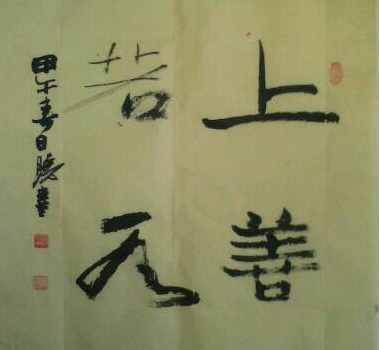 上善
若水
甲午春日